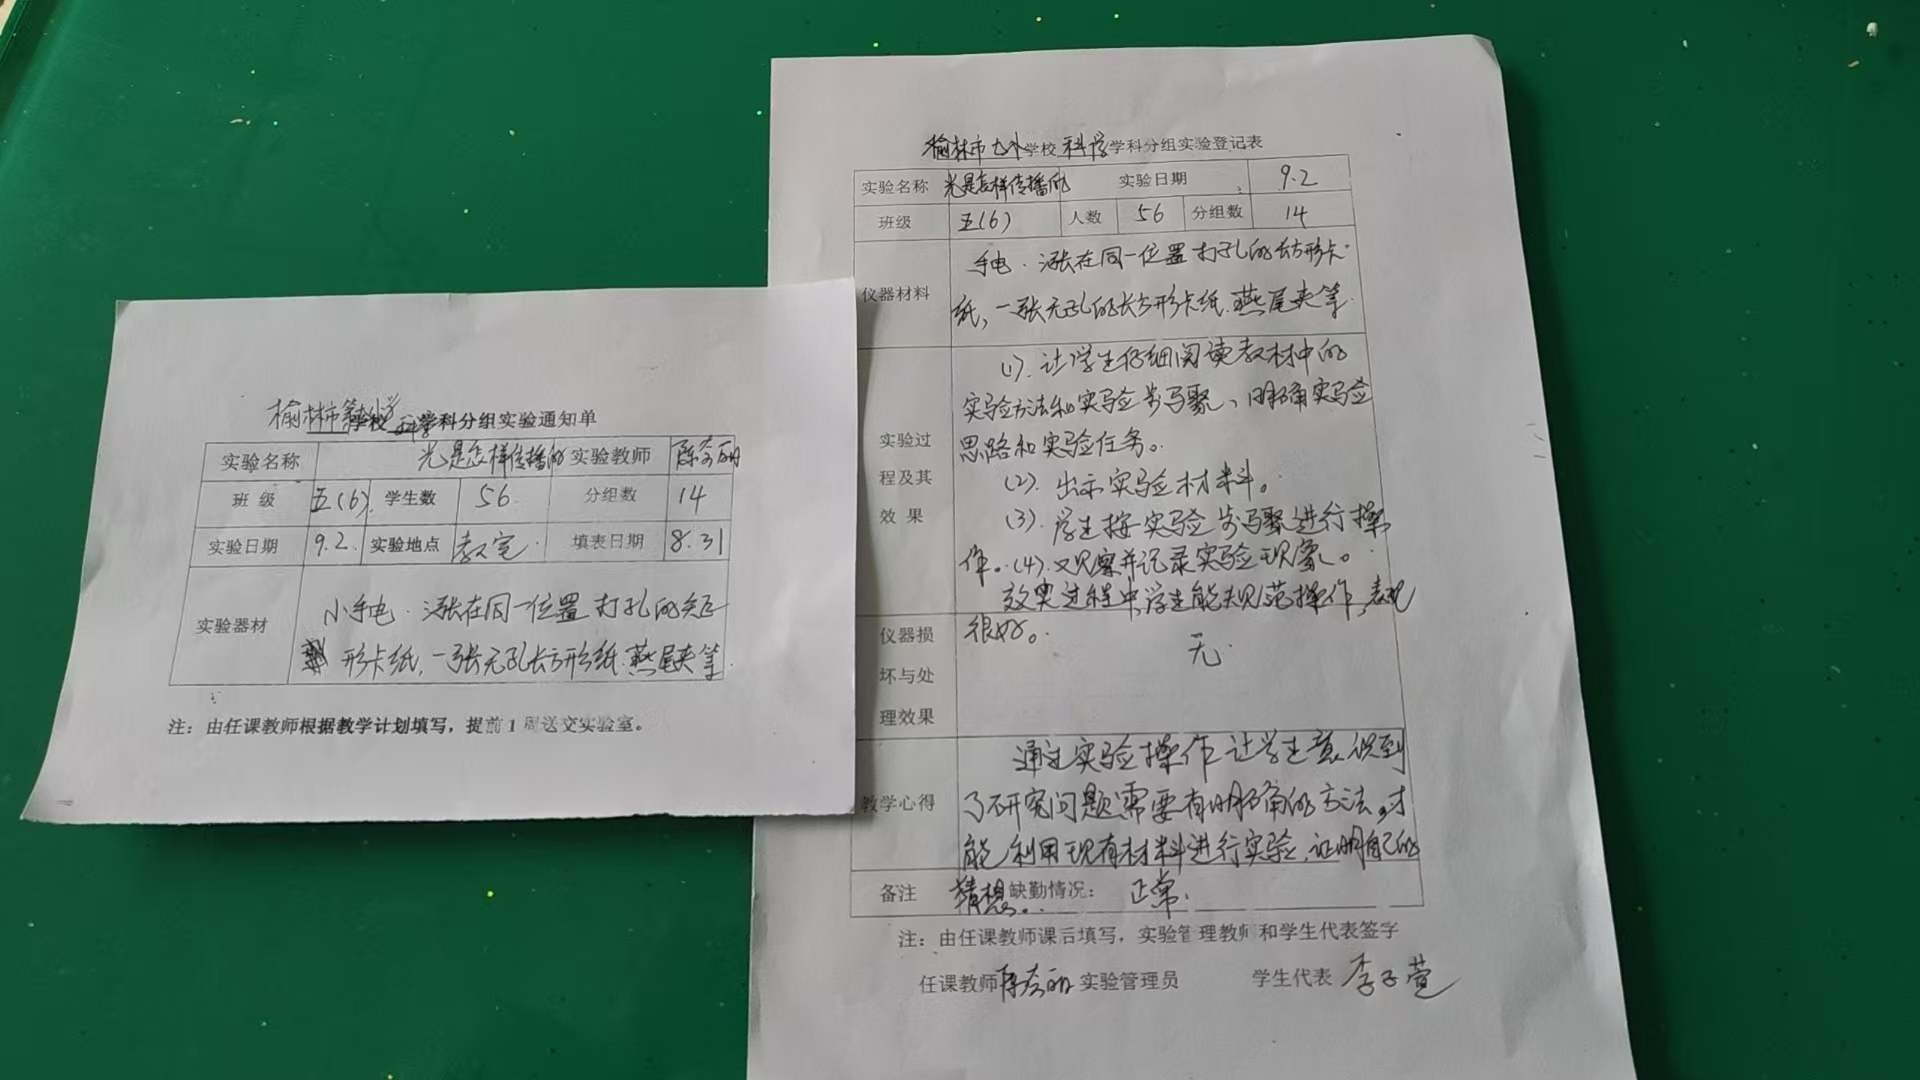 榆林市 学校 科学学科分组实验通知单
实验名称 光是怎样传播的 实验教师 陈
班 级 五(6) 学生数 56 分组数 14
实验日期 9.2. 实验地点 教室. 填表日期 8.31
实验器材
小手电. 张在同一位置打孔的矩
形卡纸, 一张无孔长方形纸. 燕尾夹等.
注：由任课教师根据教学计划填写，提前1周送交实验室。
榆林市 学校 科学学科分组实验登记表
实验名称 光是怎样传播的 实验日期 9.2
班级 五(6) 人数 56 分组数 14
仪器材料
手电. 张在同一位置打孔的长方形卡
纸, 一张无孔的长方形卡纸. 燕尾夹等.
实验过程及其效果
(1). 让学生仔细阅读教材中的
实验方法和实验步骤、明确实验
思路和实验任务。
(2). 出示实验材料。
(3). 学生按实验步骤进行操
作。(4). 观察并记录实验现象。
效果过程中,学生能规范操作,表现
很好。
仪器损坏与处理效果
无.
教学心得
通过实验操作让学生意识到
了研究问题需要有明确的方法,才
能利用现有材料进行实验,证明自己的
猜想。
备注 缺勤情况： 正常.
注：由任课教师课后填写，实验管理教师和学生代表签字
任课教师 陈 实验管理员 学生代表 李子萱